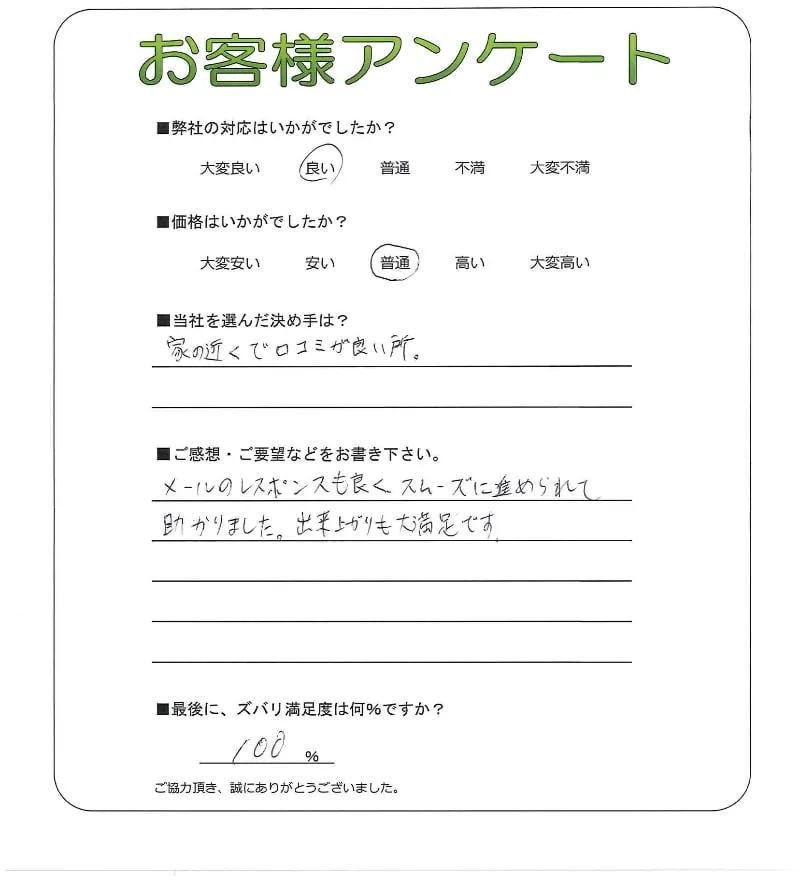 お客様アンケート
■弊社の対応はいかがでしたか？
大変良い 良い 普通 不満 大変不満
■価格はいかがでしたか？
大変安い 安い 普通 高い 大変高い
■当社を選んだ決め手は？
家の近くで口コミが良い所。
■ご感想・ご要望などをお書き下さい。
メールのレスポンスも良く、スムーズに進められて
助かりました。出来上がりも大満足です。
■最後に、ズバリ満足度は何％ですか？
100 ％
ご協力頂き、誠にありがとうございました。